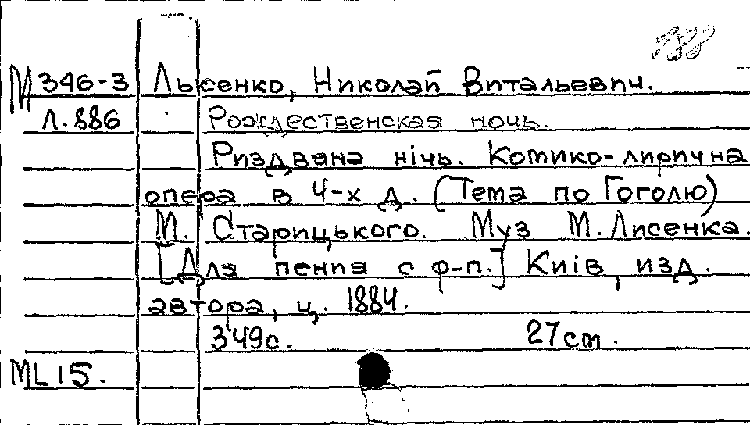 188
М 346-3 Лысенко, Николай Витальевич.
Л.886 Рождественская ночь.
Риздвяна нічь. Комико-лирична
опера в 4-х д. (Тема по Гоголю)
М. Старицького. Муз М. Лисенка.
[Для пения с ф-п.] Київ, изд.
автора, ц. 1884.
349с. 27cm.
ML15.